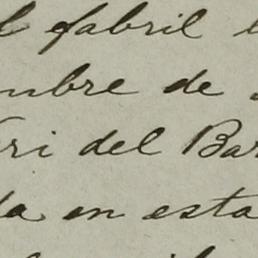 fabril
mbre de
ri del Bar
da en esta